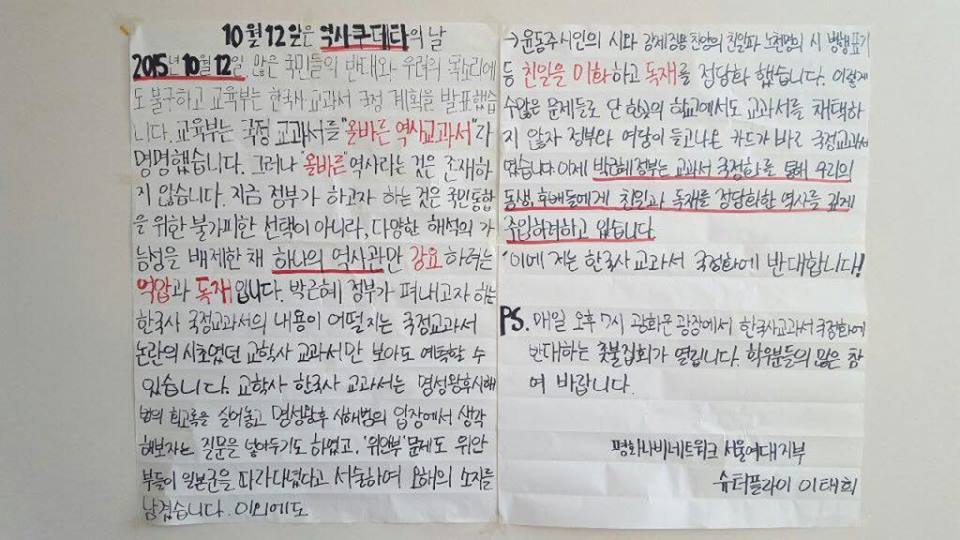 10월 12일은 역사쿠데타의 날
2015년 10월 12일, 많은 국민들의 반대와 우려의 목소리에
도 불구하고 교육부는 한국사 교과서 국정 계획을 발표했습
니다. 교육부는 국정 교과서를 "올바른 역사교과서"라
명명했습니다. 그러나 "올바른" 역사라는 것은 존재하
지 않습니다. 지금 정부가 하고자 하는 것은 국민통합
을 위한 불가피한 선택이 아니라, 다양한 해석의 가
능성을 배제한 채 하나의 역사관만 강요하려는
억압과 독재입니다. 박근혜 정부가 펴내고자 하는
한국사 국정교과서의 내용이 어떨지는 국정교과서
논란의 시초였던 교학사 교과서만 보아도 예측할 수
있습니다. 교학사 한국사 교과서는 명성왕후시해
범의 회고록을 실어놓고 명성왕후 시해범의 입장에서 생각
해보자는 질문을 넣어두기도 하였고, '위안부' 문제도 위안
부들이 일본군을 따라다녔다고 서술하여 오해의 소지를
남겼습니다. 이외에도
→ 윤동주시인의 시와 강제징용 찬양의 친일파 노천명의 시 병행표기
등 친일을 미화하고 독재를 정당화 했습니다. 이렇게
수많은 문제들로 단 하나의 학교에서도 교과서를 채택하
지 않자 정부와 여당이 들고나온 카드가 바로 국정교과서
였습니다. 이제 박근혜정부는 교과서 국정화를 통해 우리의
동생, 후배들에게 친일과 독재를 정당화한 역사를
주입하려하고 있습니다.
이에 저는 한국사 교과서 국정화에 반대합니다!
PS. 매일 오후 7시 광화문 광장에서 한국사교과서 국정화에
반대하는 촛불집회가 열립니다. 학우분들의 많은 참
여 바랍니다.
평화나비네트워크 서울여대지부
슈터플라이 이태희